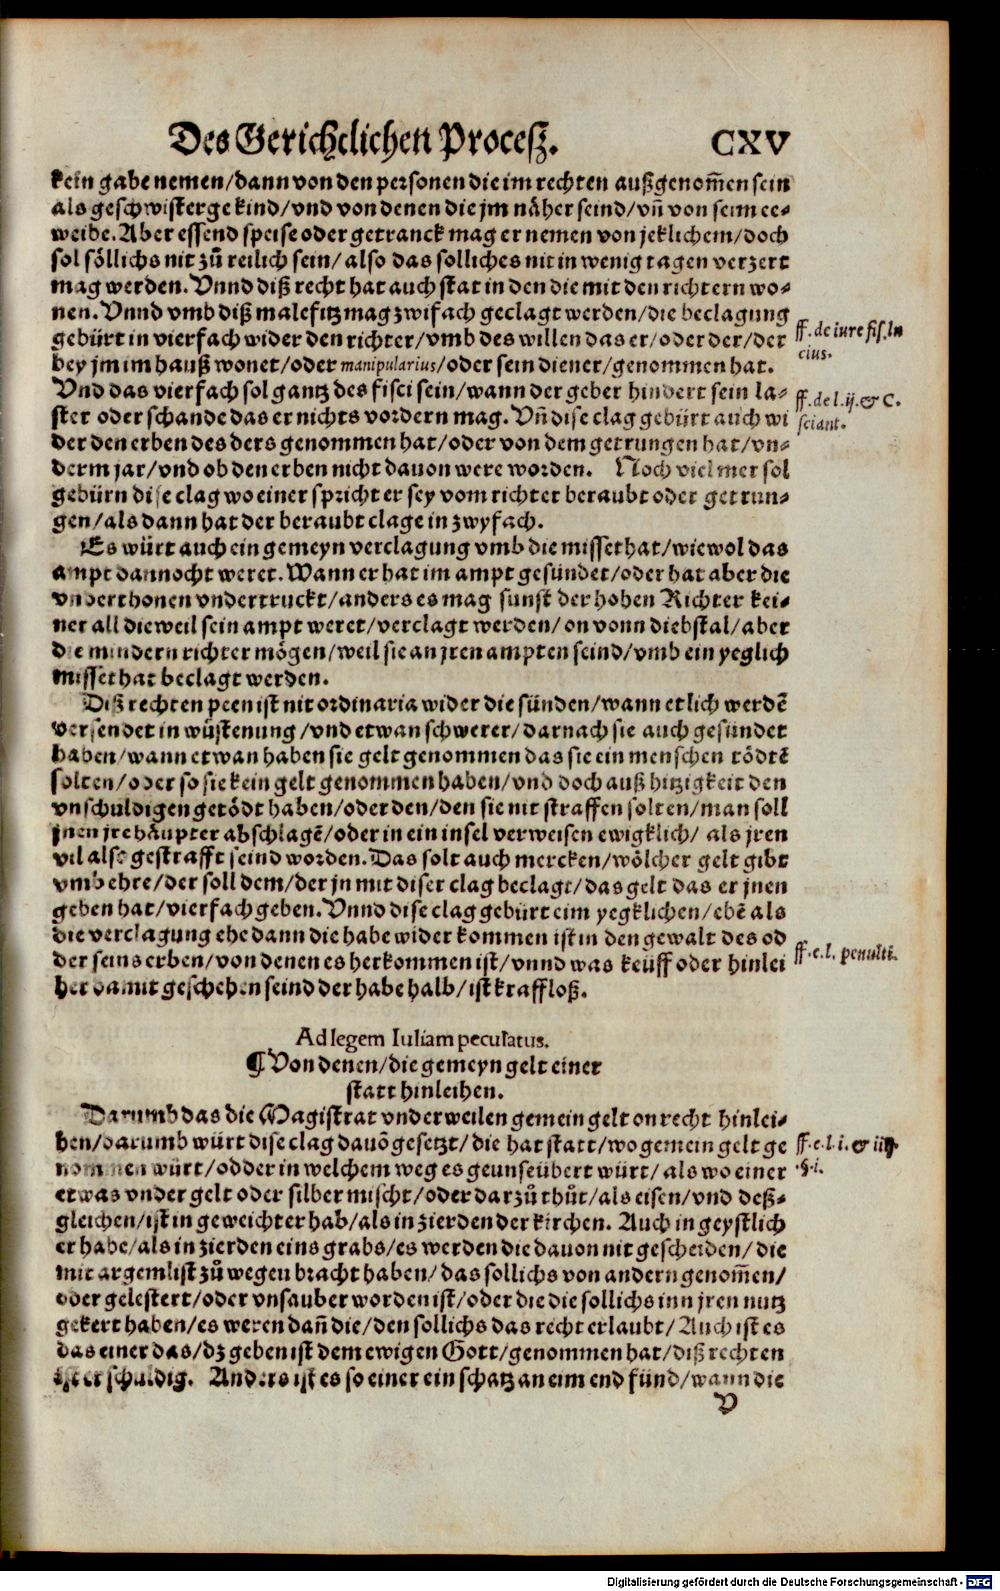 Des Gerichclichen Procesz. CXV
kein gabe nemen/dann von den personen die im rechten außgenom̃en sein
als geschwisterge kind/vnd von denen die jm näher seind/vñ von seim ee⸗
weibe. Aber essend speise oder getranck mag er nemen von jeklichem/doch
sol söllichs nit zů reilich sein/also das solliches nit in wenig tagen verzert
mag werden. Vnnd diß recht hat auch stat in den die mit den richtern wo⸗
nen. Vnnd vmb diß malefitz mag zwifach geclagt werden/die beclagung
gebürt in vierfach wider den richter/vmb des willen das er/oder der/der
bey jm im hauß wonet/oder manipularius/oder sein diener/genommen hat.
ff. de iure fis. ln
cius.
Vnd das vierfach sol gantz des fisci sein/wann der geber hindert sein la⸗
ster oder schande das er nichts vordern mag. Vñ dise clag gebürt auch wi
der den erben des ders genommen hat/oder von dem getrungen hat/vn⸗
derm jar/vnd ob den erben nicht dauon were worden. Noch viel mer sol
gebürn dise clag wo einer spricht er sey vom richter beraubt oder getrun⸗
gen/als dann hat der beraubt clage in zwyfach.
ff. de l. ij. & C.
sciant.
Es würt auch ein gemeyn verclagung vmb die missethat/wiewol das
ampt dannocht weret. Wann er hat im ampt gesündet/oder hat aber die
vnderthonen vndertruckt/anders es mag sunst der hohen Richter kei⸗
ner all dieweil sein ampt weret/verclagt werden/on vonn diebstal/aber
die mindern richter mögen/weil sie an jren ampten seind/vmb ein yeglich
missethat beclagt werden.
Diß rechten peen ist nit ordinaria wider die sünden/wann etlich werdē
versendet in wüstenung/vnd etwan schwerer/darnach sie auch gesündet
haben/wann etwan haben sie gelt genommen das sie ein menschen tödtē
solten/oder so sie kein gelt genommen haben/vnd doch auß hitzigkeit den
vnschuldigen getödt haben/oder den/den sie nit straffen solten/man soll
jnen jre häupter abschlagē/oder in ein insel verweisen ewigklich/als jren
vil also gestrafft seind worden. Das solt auch mercken/wölcher gelt gibt
vmb ehre/der soll dem/der jn mit diser clag beclagt/das gelt das er jnen
geben hat/vierfach geben. Vnnd dise clag gebürt eim yegklichen/ebē als
die verclagung ehe dann die habe wider kommen ist in den gewalt des od
der seins erben/von denen es herkommen ist/vnnd was keüff oder hinlei
her damit geschehen seind der habe halb/ist kraffloß.
ff. e. l. penulti.
Ad legem Iuliam peculatus.
¶ Von denen/die gemeyn gelt einer
statt hinleihen.
Darumb das die Magistrat vnderweilen gemein gelt on recht hinlei⸗
hen/darumb würt dise clag dauō gesetzt/die hat statt/wo gemein gelt ge
nommen würt/od der in welchem weg es geunseübert würt/als wo einer
etwas vnder gelt oder silber mischt/oder darzů thůt/als eisen/vnd deß⸗
gleichen/ist in geweichter hab/als in zierden der kirchen. Auch in geystlich
er habe/als in zierden eins grabs/es werden die dauon nit gescheiden/die
mit argemlist zů wegen bracht haben/das sollichs von andern genom̃en/
oder gelestert/oder vnsauber worden ist/oder die die sollichs inn jren nutz
gekert haben/es weren dañ die/den sollichs das recht erlaubt/Auch ist es
das einer das/dz geben ist dem ewigen Gott/genommen hat/diß rechten
ist er schuldig. Anders ist es so einer ein schatz an eim end fünd/wann die
ff. e. l. i. & iiij.
§. i.
V
Digitalisierung gefördert durch die Deutsche Forschungsgemeinschaft - DFG